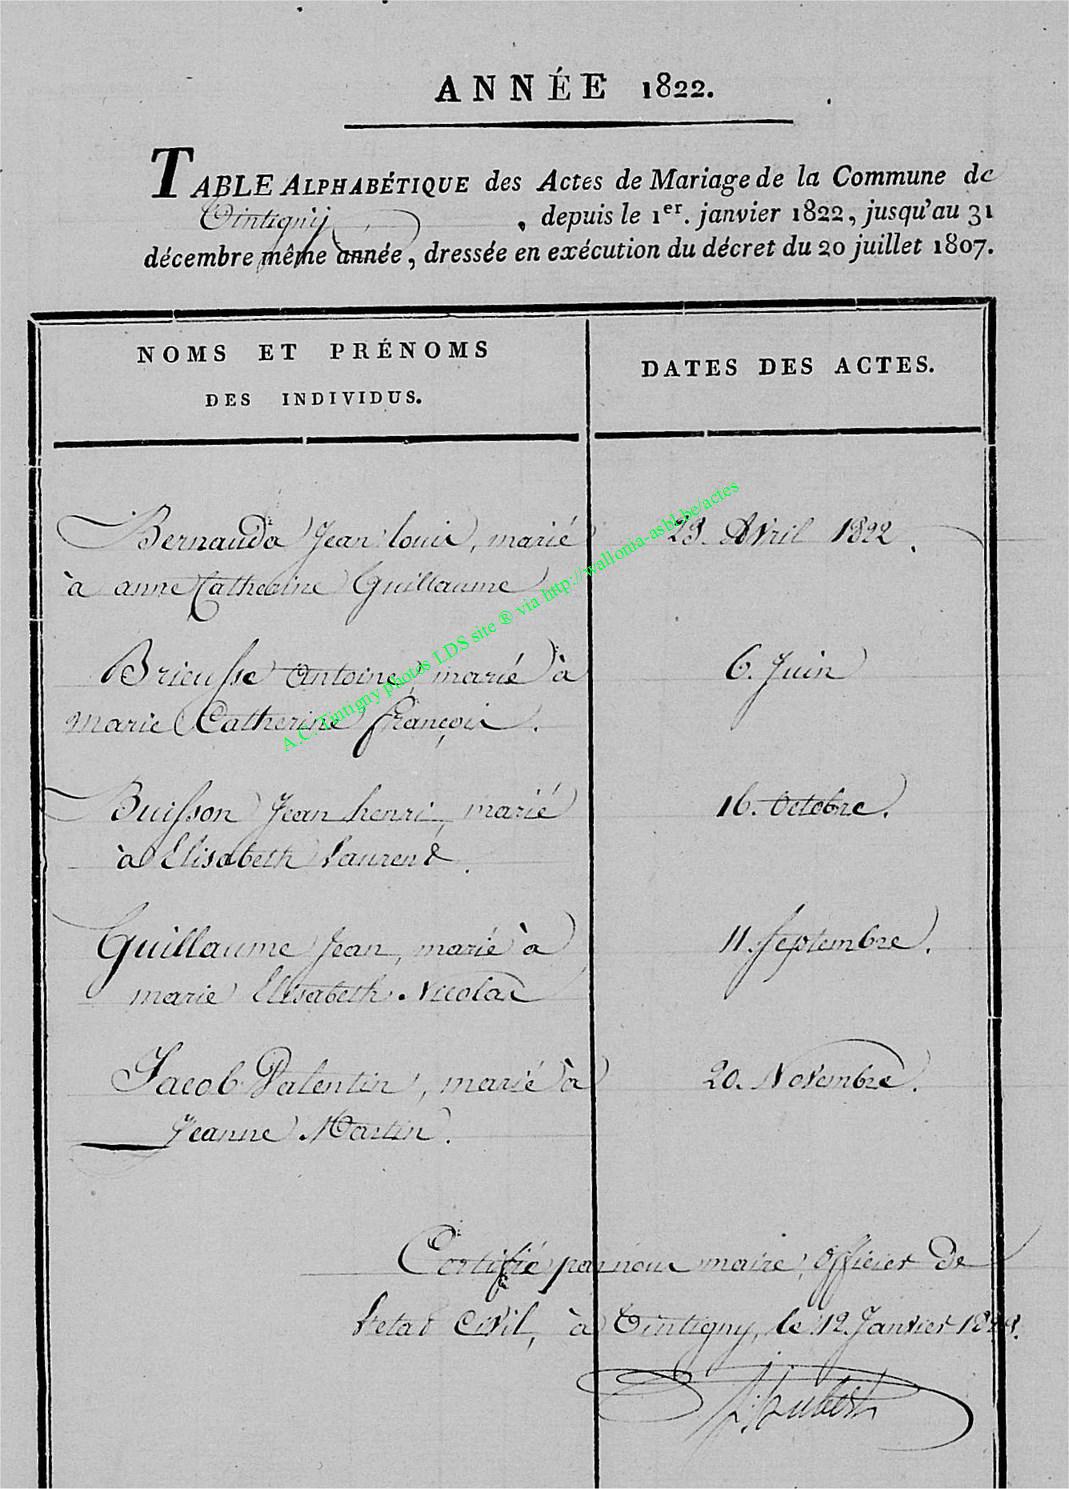 ANNÉE 1822.
TABLE ALPHABÉTIQUE des Actes de Mariage de la Commune de
Tintigny, depuis le 1er. janvier 1822, jusqu'au 31
décembre même année, dressée en exécution du décret du 20 juillet 1807.
NOMS ET PRÉNOMS
DES INDIVIDUS.
DATES DES ACTES.
Bernauda Jean louis, marié
à anne Catherine Guillaume
23. Avril 1822.
Brieusse Antoine, marié à
marie Catherine françois.
6. Juin
Buisson Jean henri, marié
à Elisabeth Laurent.
16. Octobre.
Guillaume Jean, marié à
marie Elisabeth Nicolas
11. Septembre.
Jacob Valentin, marié à
Jeanne Martin.
20. Novembre.
Certifié par nous maire, Officier de
l'etat Civil, à Tintigny, le 12 Janvier
hubert
A.C. Tintigny photos LDS site ® via http://wallonia-asbl.be/actes